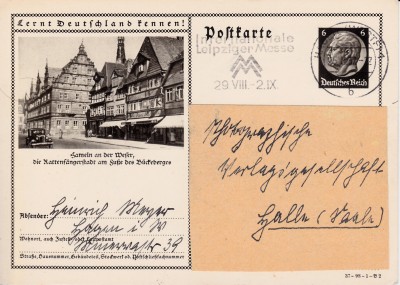 Lernt Deutschland kennen!
6 6
Deutsches Reich
Postkarte
Internationale
Leipziger Messe
29.VIII.-2.IX.
b
Hameln an der Weser,
die Rattenfängerstadt am Fuße des Bückeberges
Photographische
Verlagsgesellschaft
Halle (Saale)
Absender: Heinrich Meyer
Hagen i W
Wohnort, auch Zustell- oder Leitpostamt
39
Straße, Hausnummer, Gebäudeteil, Stockwerk od. Postschließfachnummer
37-98-1-B2